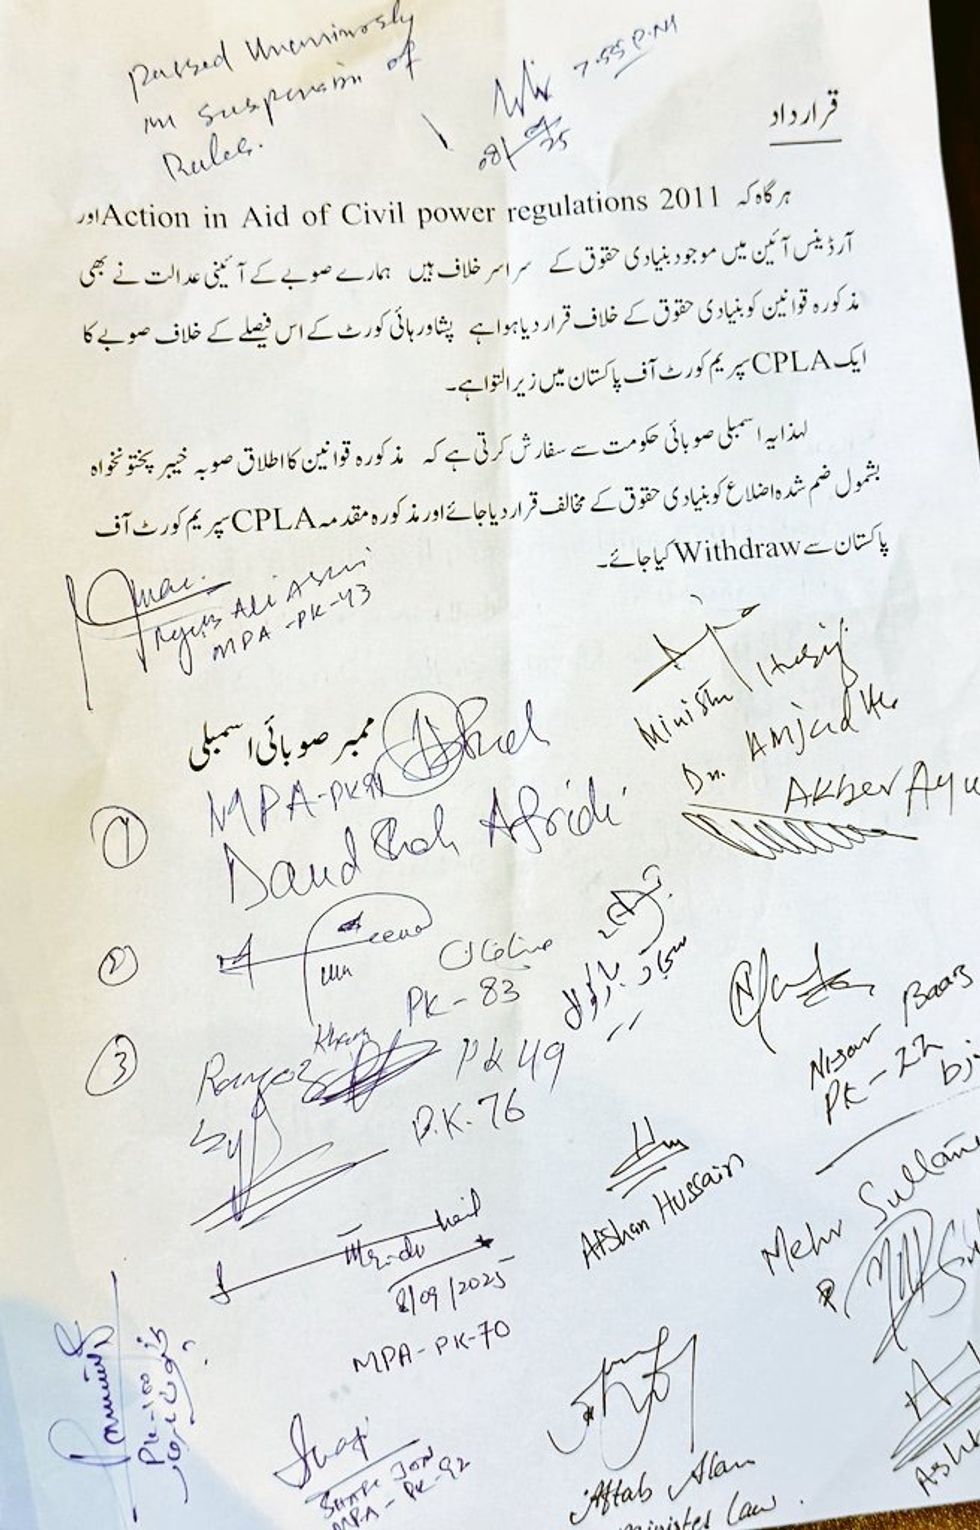 Passed Unanimously
in suspension of
Rules.
7.55 P.M
08/09/25
قرارداد
ہر گاہ کہ Action in Aid of Civil power regulations 2011 اور
آرڈیننس آئین میں موجود بنیادی حقوق کے سراسر خلاف ہیں ہمارے صوبے کے آئینی عدالت نے بھی
مذکورہ قوانین کو بنیادی حقوق کے خلاف قرار دیا ہوا ہے پشاور ہائی کورٹ کے اس فیصلے کے خلاف صوبے کا
ایک CPLA سپریم کورٹ آف پاکستان میں زیر التوا ہے۔
لہذا یہ اسمبلی صوبائی حکومت سے سفارش کرتی ہے کہ مذکورہ قوانین کا اطلاق صوبہ خیبر پختونخواہ
بشمول ضم شدہ اضلاع کو بنیادی حقوق کے مخالف قرار دیا جائے اور مذکورہ مقدمہ CPLA سپریم کورٹ آف
پاکستان سے Withdraw کیا جائے۔
MPA-PK-93
ممبر صوبائی اسمبلی
Minister
Dr. Amjad Ali
Akber Ayu
① MPA-PK
Daud Shah Afridi
②
PK-83
③
Khan
PK 49
P.K. 76
Nisar Baaz
PK-22
bj
Afshan Hussain
Mehr Sultan
8/09/2025
MPA-PK-70
PK-100
MPA-PK-92
Aftab Alam
minister Law.